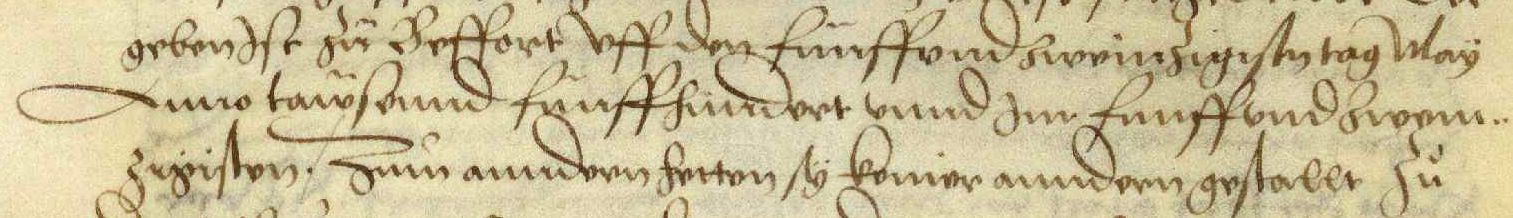 geben Ist zů Beffort vff den fünffvnd zweintzigistn tag May
Anno taußennd fünffhundert vnnd Im fünffvnd zwein..
tzigisten. Zum anndern hetten sy keiner anndern gestallt zů